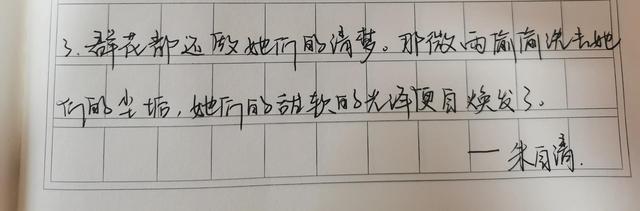 3. 群花都还做她们的清梦。那微雨偷偷洗去她
们的尘垢，她们的甜软的光泽便自焕发了。
——朱自清.